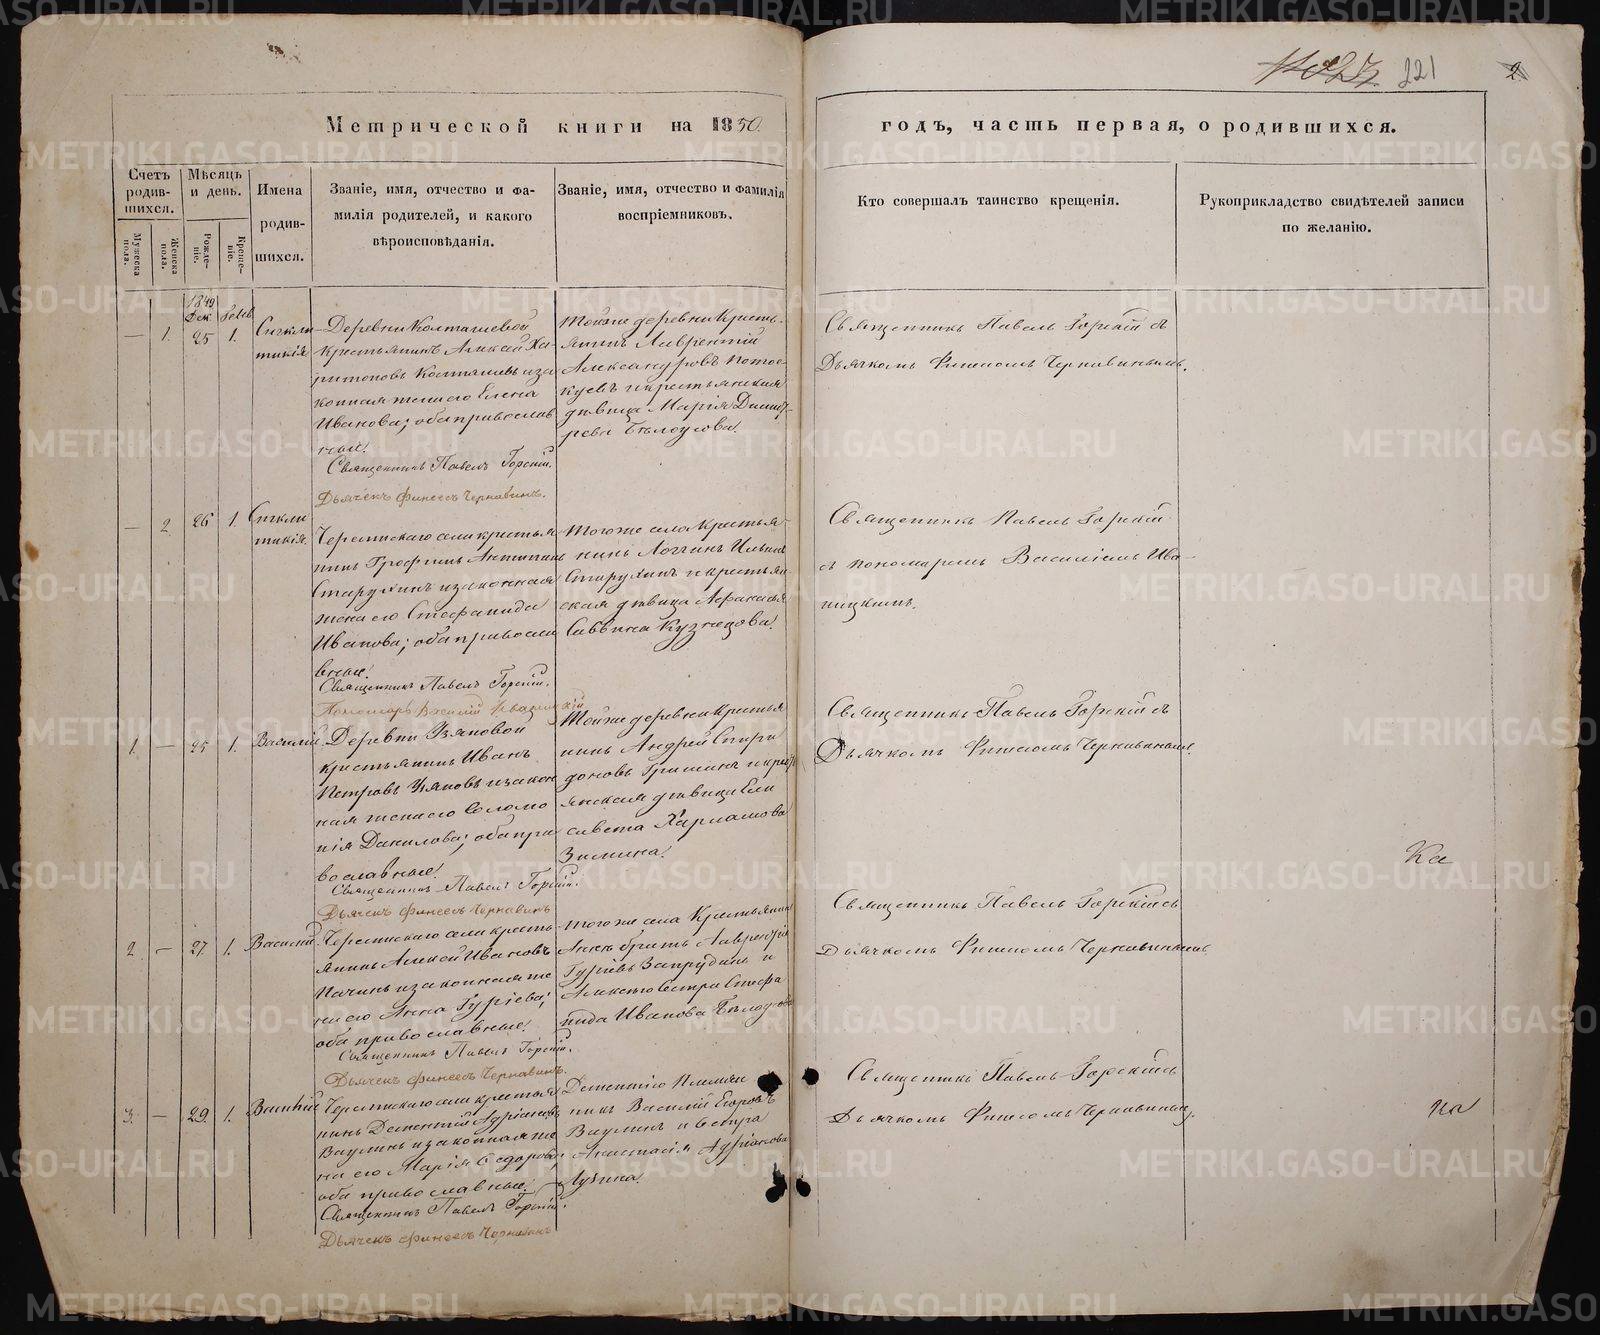 221
Метрической книги на 1850.
годъ, часть первая, о родившихся.
Счетъ родившихся.
Мужеска пола.
Женска пола.
Мѣсяцъ и день.
Рожденіе.
Крещеніе.
Имена родившихся.
Званіе, имя, отчество и фамилія родителей, и какого вѣроисповѣданія.
Званіе, имя, отчество и фамилія воспріемниковъ.
Кто совершалъ таинство крещенія.
Рукоприкладство свидѣтелей записи по желанію.
1849
Дек.
— 1. 25 1.
Сигкли-
тикія
Деревни Колташевой
крестьянинъ Алексѣй Ха-
ритоновъ Колташевъ и за
конная жена его Елена
Иванова; оба православ
ные.
Священникъ Павелъ Горскій.
Дьячекъ Финеесъ Чернавинъ.
Тойже деревни кресть-
янинъ Лаврентій
Александровъ Потос-
куевъ и крестьянская
дѣвица Марія Димит-
рева Бѣлоусова.
Священникъ Павелъ Горскій съ
Дьячкомъ Финеесомъ Чернавинымъ.
— 2 26 1.
Сигкли
тикія.
села крестья
нинъ Трофимъ Антипинъ
Старухинъ и законная
жена его Стефанида
Иванова; оба правосла
вные.
Священникъ Павелъ Горскій.
Пономарь Василій Иваницкій
Тогоже села крестья-
нинъ Логгинъ Ильинъ
Старухинъ и крестьян
ская дѣвица Афанасья
Саввина Кузнецова.
Священникъ Павелъ Горскій
съ пономаремъ Василіемъ Ива-
ницкимъ.
1. — 25 1. Василій
Деревни Узяновой
крестьянинъ Иванъ
Петровъ Узяновъ и закон
ная жена его Соломо
нія Данилова; оба пра
вославные.
Священникъ Павелъ Горскій.
Дьячекъ Финеесъ Чернавинъ
Тойже деревни крестья
нинъ Андрей Спири
доновъ Гришинъ и крест
янская дѣвица Ели
савета Харлампова
Зимина.
Священникъ Павелъ Горскій съ
Дьячкомъ Финеесомъ Чернавинымъ.
Ка
2. — 27. 1. Василій.
села кресть
янинъ Алексѣй Ивановъ
Пачинъ и законная же
на его Анна Гуріева;
оба православные.
Священникъ Павелъ Горскій.
Дьячекъ Финеесъ Чернавинъ.
Тогоже села крестьянинъ
Анны братъ Лаврентій
Гуріевъ Запрудинъ и
Алексѣя сестра Стефа
нида Иванова Бѣлоусова
Священникъ Павелъ Горскій съ
Дьячкомъ Финеесомъ Чернавинымъ.
3. — 29. 1. Василій
села крестья
нинъ Дементій Адріановъ
Ваулинъ и законная же
на его Марія Ѳедорова;
оба православные.
Священникъ Павелъ Горскій.
Дьячекъ Финеесъ Чернавинъ
Дементія племян
никъ Василій Егоровъ
Ваулинъ и сестра
Анастасія Адріанова
Лузина.
Священникъ Павелъ Горскій съ
Дьячкомъ Финеесомъ Чернавинымъ.
METRIKI.GASO-URAL.RU